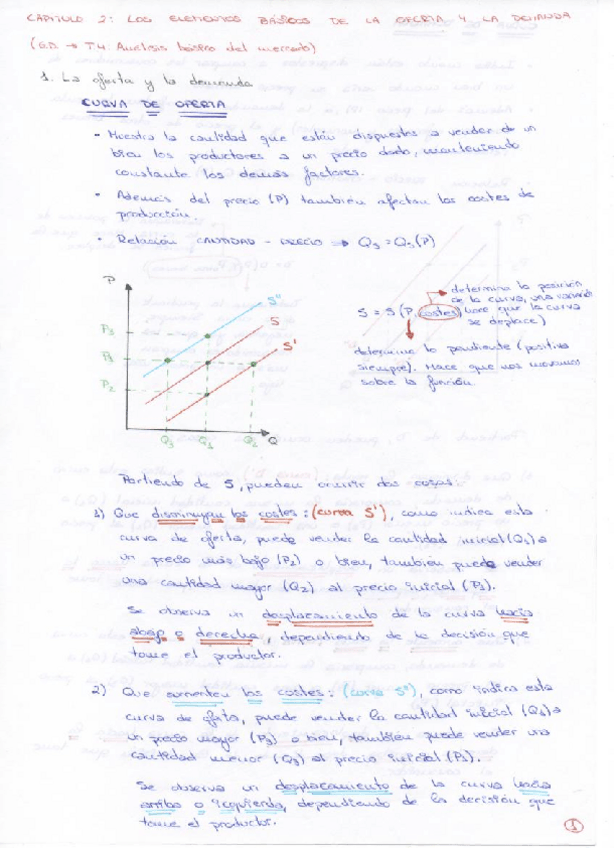 CAPITULO 2: LOS ELEMENTOS BÁSICOS DE LA OFERTA Y LA DEMANDA
T.4: Análisis básico del mercado)
1. La oferta y la demanda
CURVA DE OFERTA
- Muestra la cantidad que están dispuestos a vender de un
bien los productores a un precio dado, manteniendo
constante los demás factores.
- Además del precio (P) también afectan los costes de
producción.
- Relación CANTIDAD - PRECIO ⇒ Qs = Qs(P)
P
S"
S
S'
P3
P1
P2
Q3 Q1 Q2 Q
S = S (P, costes)
determina la posición
de la curva, una variación
hace que la curva
se desplace)
determina la pendiente (positiva
siempre). Hace que nos movamos
sobre la función.
Partiendo de S, pueden ocurrir dos cosas:
1) Que disminuyan los costes: (curva S'), como indica esta
curva de oferta, puede vender la cantidad inicial (Q1) a
un precio más bajo (P2) o bien, también puede vender
una cantidad mayor (Q2) al precio inicial (P1).
Se observa un desplazamiento de la curva hacia
abajo o derecha, dependiendo de la decisión que
tome el productor.
2) Que aumenten los costes: (curva S"), como indica esta
curva de oferta, puede vender la cantidad inicial (Q1) a
un precio mayor (P3) o bien, también puede vender una
cantidad menor (Q3) al precio inicial (P1).
Se observa un desplazamiento de la curva hacia
arriba o izquierda, dependiendo de la decisión que
tome el productor.
1